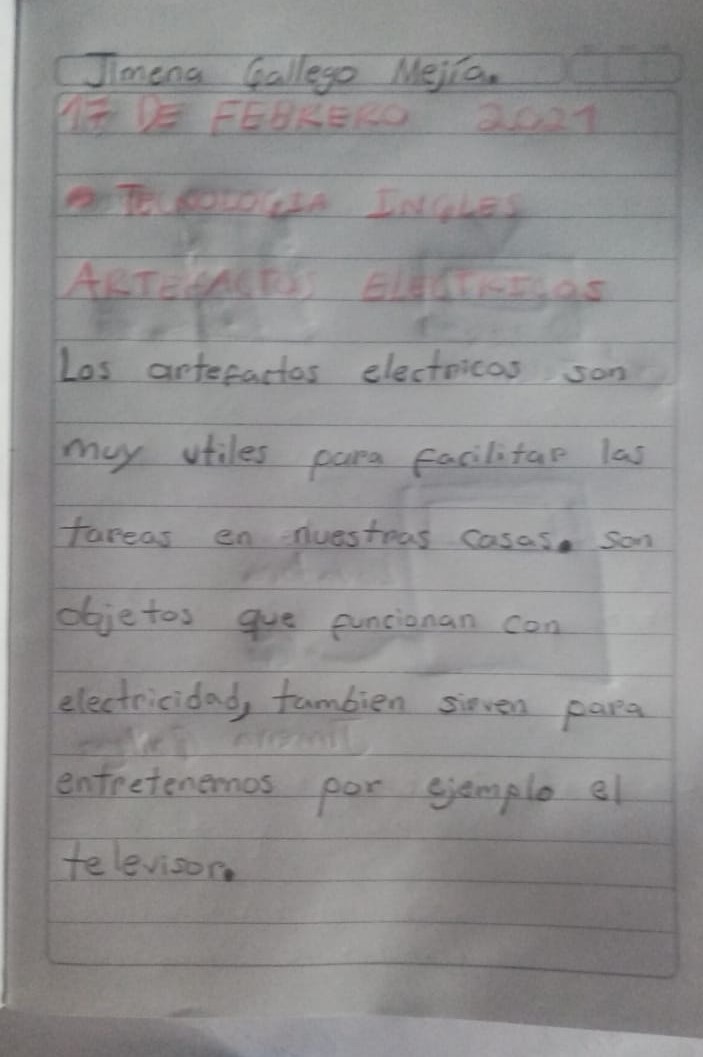 Jimena Gallego Mejía.
17 DE FEBRERO 2021
TECNOLOGIA INGLES
ARTEFACTOS ELECTRICOS
Los artefactos electricos son
muy utiles para facilitar las
tareas en nuestras casas. son
objetos que funcionan con
electricidad, tambien sirven para
entretenernos por ejemplo el
televisor.